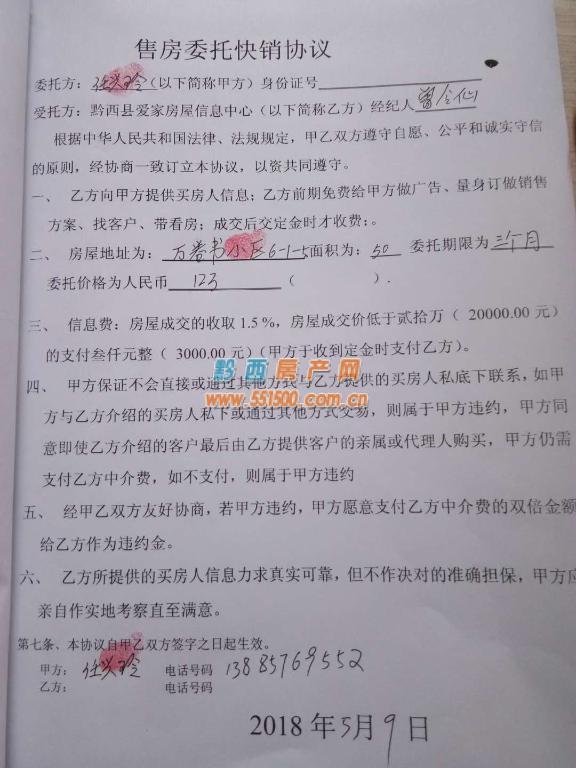 售房委托快销协议
委托方：任兴玲（以下简称甲方）身份证号
受托方：黔西县爱家房屋信息中心（以下简称乙方）经纪人曾令仙
根据中华人民共和国法律、法规规定，甲乙双方遵守自愿、公平和诚实守信
的原则，经协商一致订立本协议，以资共同遵守。
一、 乙方向甲方提供买房人信息；乙方前期免费给甲方做广告、量身订做销售
方案、找客户、带看房；成交后交定金时才收费；。
二、 房屋地址为： 万卷书小区6-1-5面积为：50 委托期限为三个月
委托价格为人民币 123 （ ）.
三、 信息费：房屋成交的收取 1.5 %，房屋成交价低于贰拾万（ 20000.00 元）
的支付叁仟元整（ 3000.00 元）（甲方于收到定金时支付乙方）。
黔西房产网
www.551500.com.cn
四、 甲方保证不会直接或通过其他方式与乙方提供的买房人私底下联系，如甲
方与乙方介绍的买房人私下或通过其他方式交易，则属于甲方违约，甲方同
意即使乙方介绍的客户最后由乙方提供客户的亲属或代理人购买，甲方仍需
支付乙方中介费，如不支付，则属于甲方违约
五、 经甲乙双方友好协商，若甲方违约，甲方愿意支付乙方中介费的双倍金额
给乙方作为违约金。
六、 乙方所提供的买房人信息力求真实可靠，但不作决对的准确担保，甲方应
亲自作实地考察直至满意。
第七条、本协议自甲乙双方签字之日起生效。
甲方： 任兴玲 电话号码 13885769552
乙方： 电话号码
2018 年5月9日